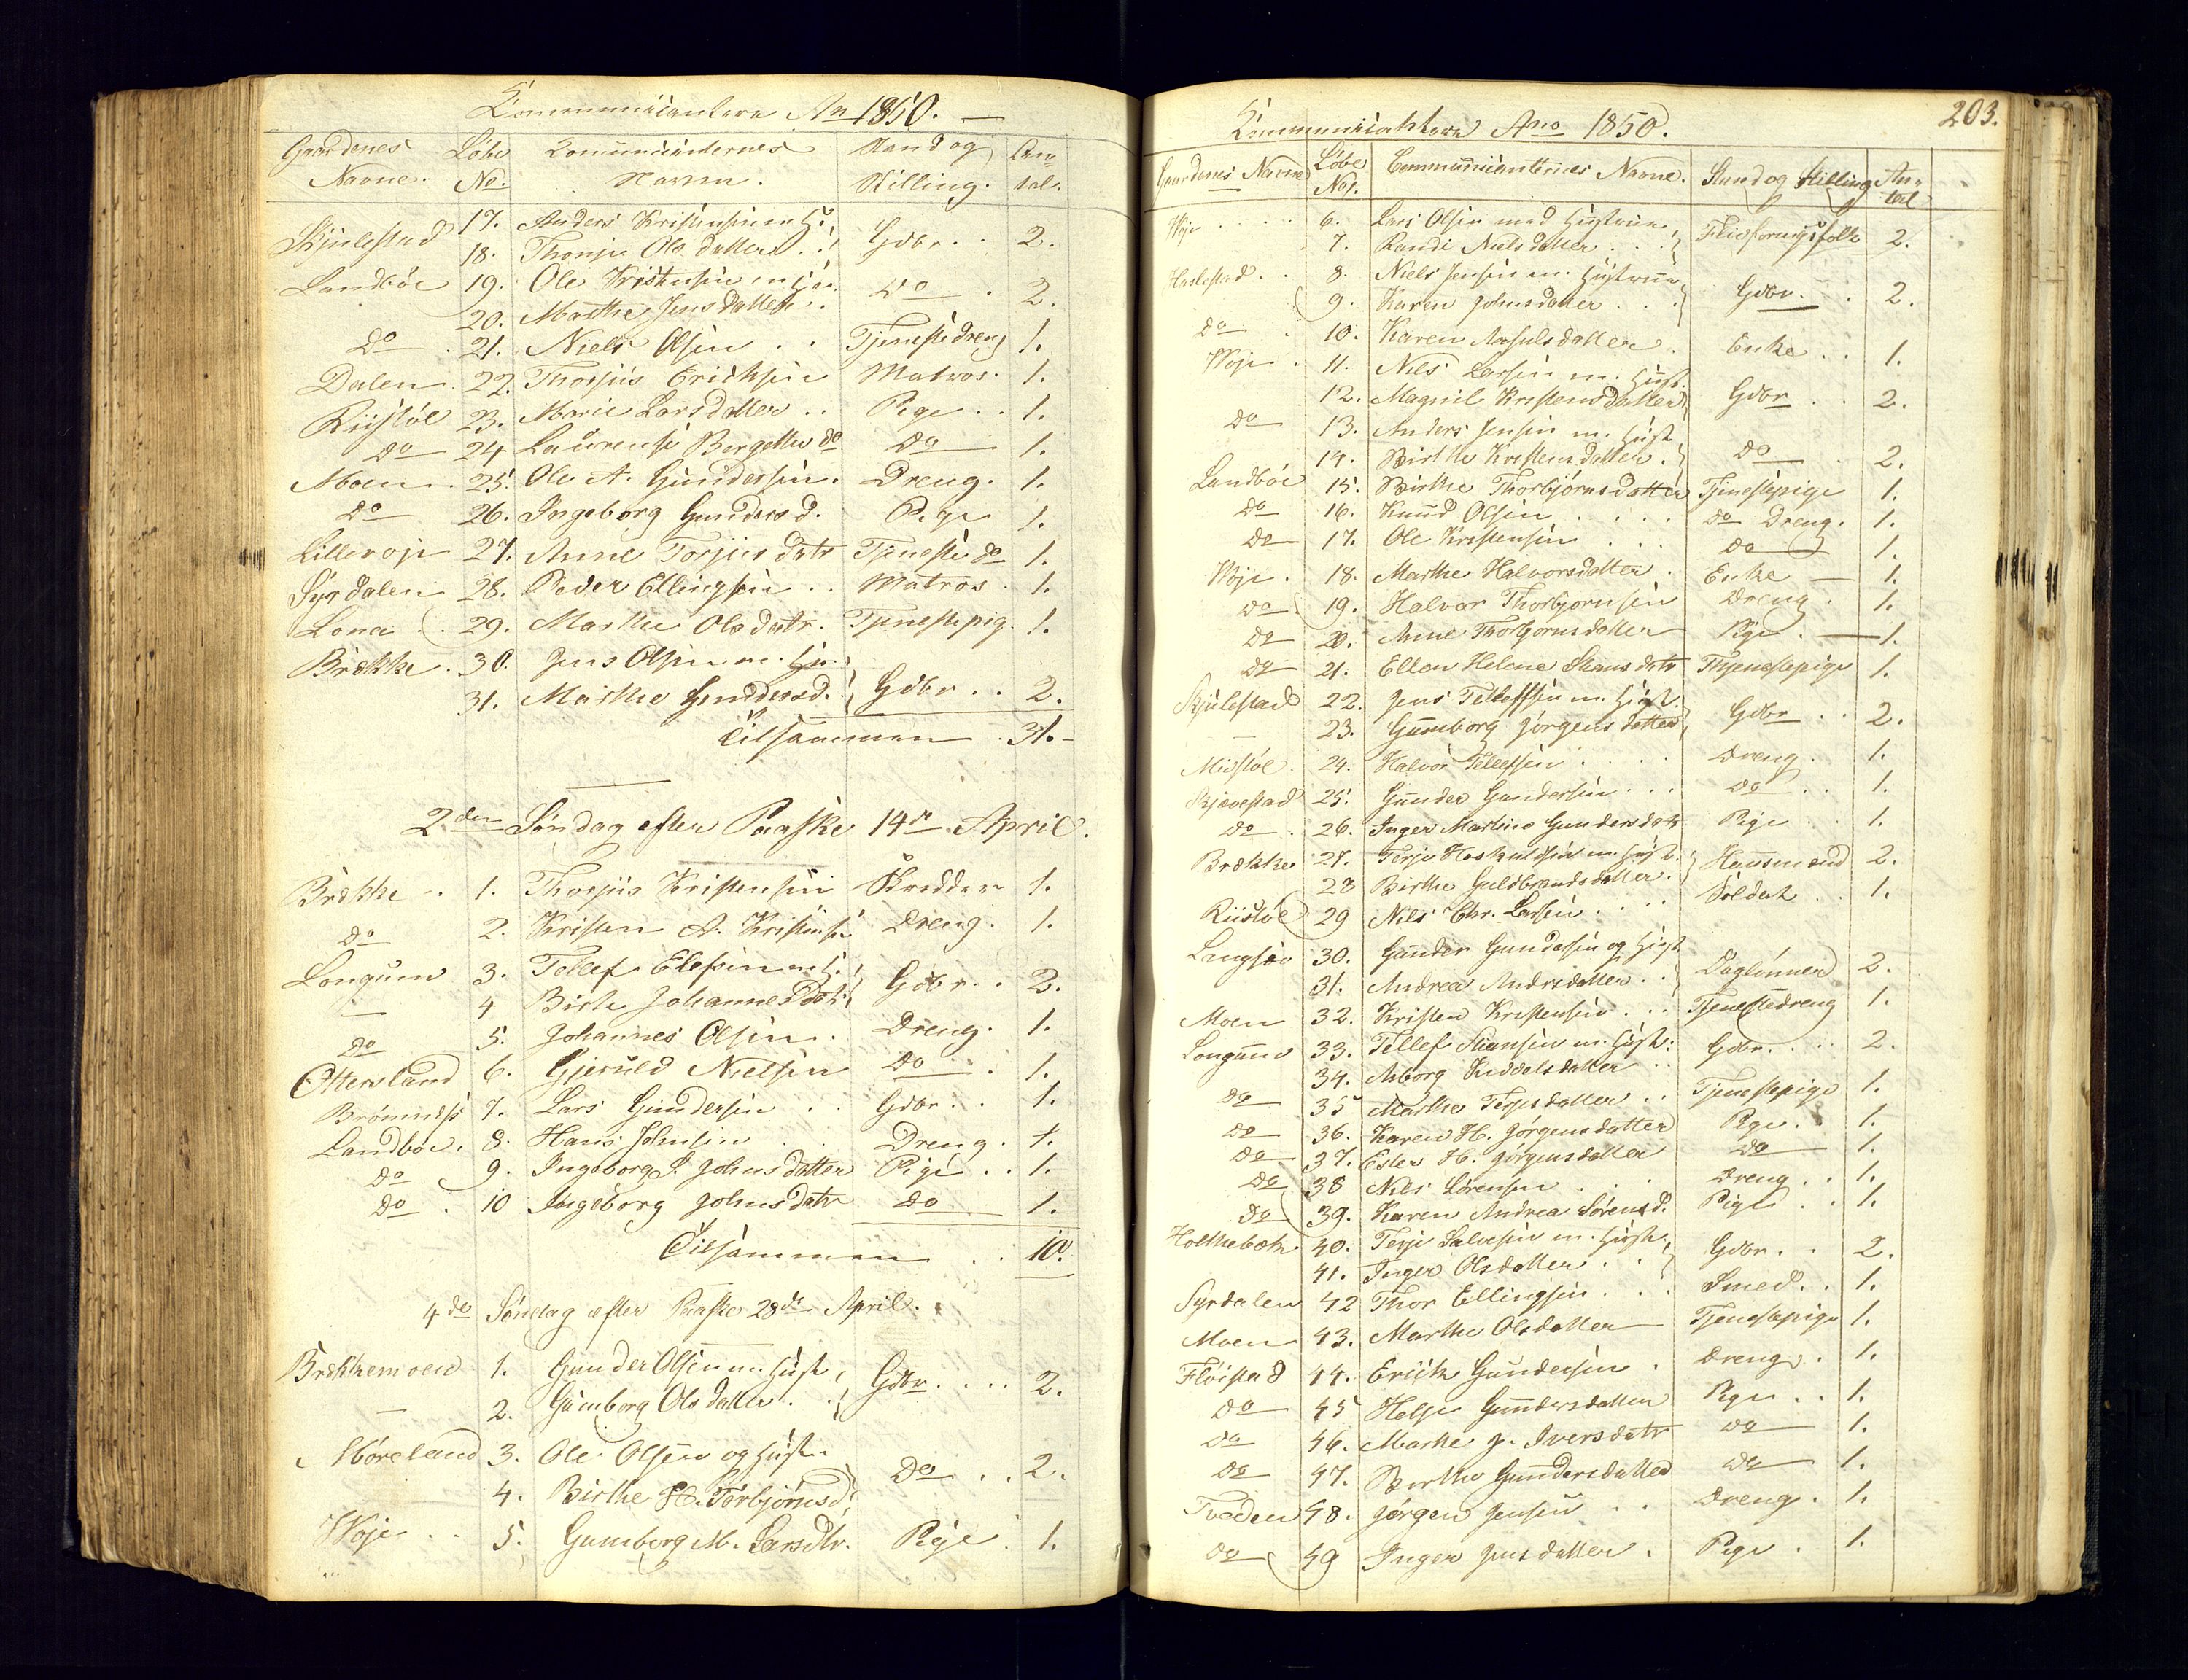 Communicantere An 1850. —
Gaardenes Løbe Communicanternes Stand og An-
Navne. No. Navne. Stilling. tal.
Skjulestad 17. Anders Kristensen m. H.
18. Thonje Ols datter Gdbr. . . 2.
Landbøe 19. Ole Kristensen m. H.
20. Marthe Jens datter Do . 2.
Do . 21. Niels Olsen . . Tjenestedreng 1.
Dalen . 22. Thorjus Erichsen Matros. 1.
Riisløe 23. Marie Larsdatter . . Pige . . 1.
Do 24 Laurense Bergethe Do Do 1.
Moen . 25. Ole A. Gundersen. Dreng. 1.
Do 26. Ingeborg Gunders d. Pige 1.
Lillevoje 27. Anne Torjus datr Tjeneste Do 1.
Syrdalen 28. Peder Ellingsen . . Matros . 1.
Lona . . 29. Marthe Ols datr. Tjenestepig. 1.
Brække . 30. Jens Olsen m. Hu.
31. Marthe Gundersd. Gdbr . . 2.
Tilsammen . 31. -
2den Søndag efter Paaske 14de April.
Brække . 1. Thorjus Kristensen Skredder 1.
Do 2. Kristen A. Kristensen Dreng. 1.
Longum 3. Tellef Elefsen m. H.
— 4 Birte Johannes datr Gdbr. . 2.
Do 5. Johannes Olsen . Dreng. 1.
Ottersland 6. Gjeruld Nielsen Do . 1.
7. Lars Gundersen . . Gdbr. . 1.
Landbøe. 8. Hans Johnsen . . Dreng. 1.
Do 9. Ingeborg S. Johns datter Pige . . 1.
Do . 10 Ingeborg Johns datr Do 1.
Tilsammen . . 10.
4de Søndag efter Paaske 28de April.
Brækkemoen 1. Gunder Olsen m. Hust.
— 2. Gunborg Ols datter . Gdbr. . . . 2.
Møreland 3. Ole Olsen og Hustr.
4. Birthe H. Torbjørnsd. Do . . 2.
Woje . . 5. Gunborg M. Larsdtr. Pige . 1.
203.
Communicantere Ano 1850.
Gaardenes Navne Løbe No. Communicanternes Navne. Stand og Stilling An-
tal
Woje . . . . 6. Lars Olsen med Hustrue,
7. Randi Niels datter . . . Fledføringsfolk 2.
Haslestad . . 8. Niels Jensen m. Hustrue
9. Karen Johnsdatter . . . Gdbr. . . 2.
Do . 10. Karen datter . Enke . . 1.
Woje . 11. Nils Larsen m. Hust.
12. Magnil Kristensdatter Gdbr . . 2.
Do 13. Anders Jensen m. Hust.
14. Birthe Kristens datter. Do . 2.
Landbøe 15. Birthe Thorbjørnsdatter Tjenestepige 1.
Do 16. Knud Olsen . . . . Do Dreng. 1.
Do 17. Ole Kristensen . . . Do 1.
Woje . 18. Marthe Halvorsdatter . Enke — 1.
Do 19. Halvor Thorbjornsen Dreng . 1.
Do 20. Anne Thorbjornsdatter Pige . — 1.
Do 21. Ellen Helene datr Thjenestepige 1.
Skjulestad 22. Jens Telleffsen m. Hust.
— 23. Gunborg Jørgens datter Gdbr . . 2.
Midtløe . 24. Halvor Tellefsen . . . . Dreng . 1.
Skjævestad 25. Gunder Gundersen . . . Do . . 1.
Do . 26. Inger Martine Gundersdatr Pige . . 1.
Brække 27. Terje m. Hust. Huusmand 2.
28 Birthe Guldbrandsdatter.
Riisløe 29 Nils Chr. Larsen . . . . Soldat . . 1.
Langsæv 30. Gunder Gundersen og Hust
31. Andrea Andrsdatter . . Daglønner 2.
Moen 32. Kristen Kristensen . . . Tjenestedreng 1.
Longum 33. Tellef m. Hust.
34. Asborg Kiddelsdatter . . Gdbr. . . . 2.
Do 35 Marthe Terjesdatter . . Tjenestepige 1.
Do 36. Karen H. Jørgensdatter Pige . 1.
Do 37. Ester H. Jørgensdatter Do 1.
Do 38 Niels Sørensen . . . Dreng . . 1.
Do 39. Karen Andrea Sørensd. Pige . . 1.
40. Terje Salvesen m. Hust.
41. Inger Olsdatter . . . Gdbr. . . 2.
Syrdalen 42 Thor Ellingsen . . . Smed. . 1.
Moen 43. Marthe Olsdatter Tjenestepige 1.
Fløistad 44. Erich Gundersen . Dreng . . 1.
Do 45 Helje Gundersdatter Pige . . 1.
Do 46. Marthe J. Iversdatr Do 1.
Do 47. Berthe Gundersdatter Do 1.
Tveden 48. Jørgen Jensen . . Dreng . 1.
Do 49 Inger Jensdatter . Pige . 1.